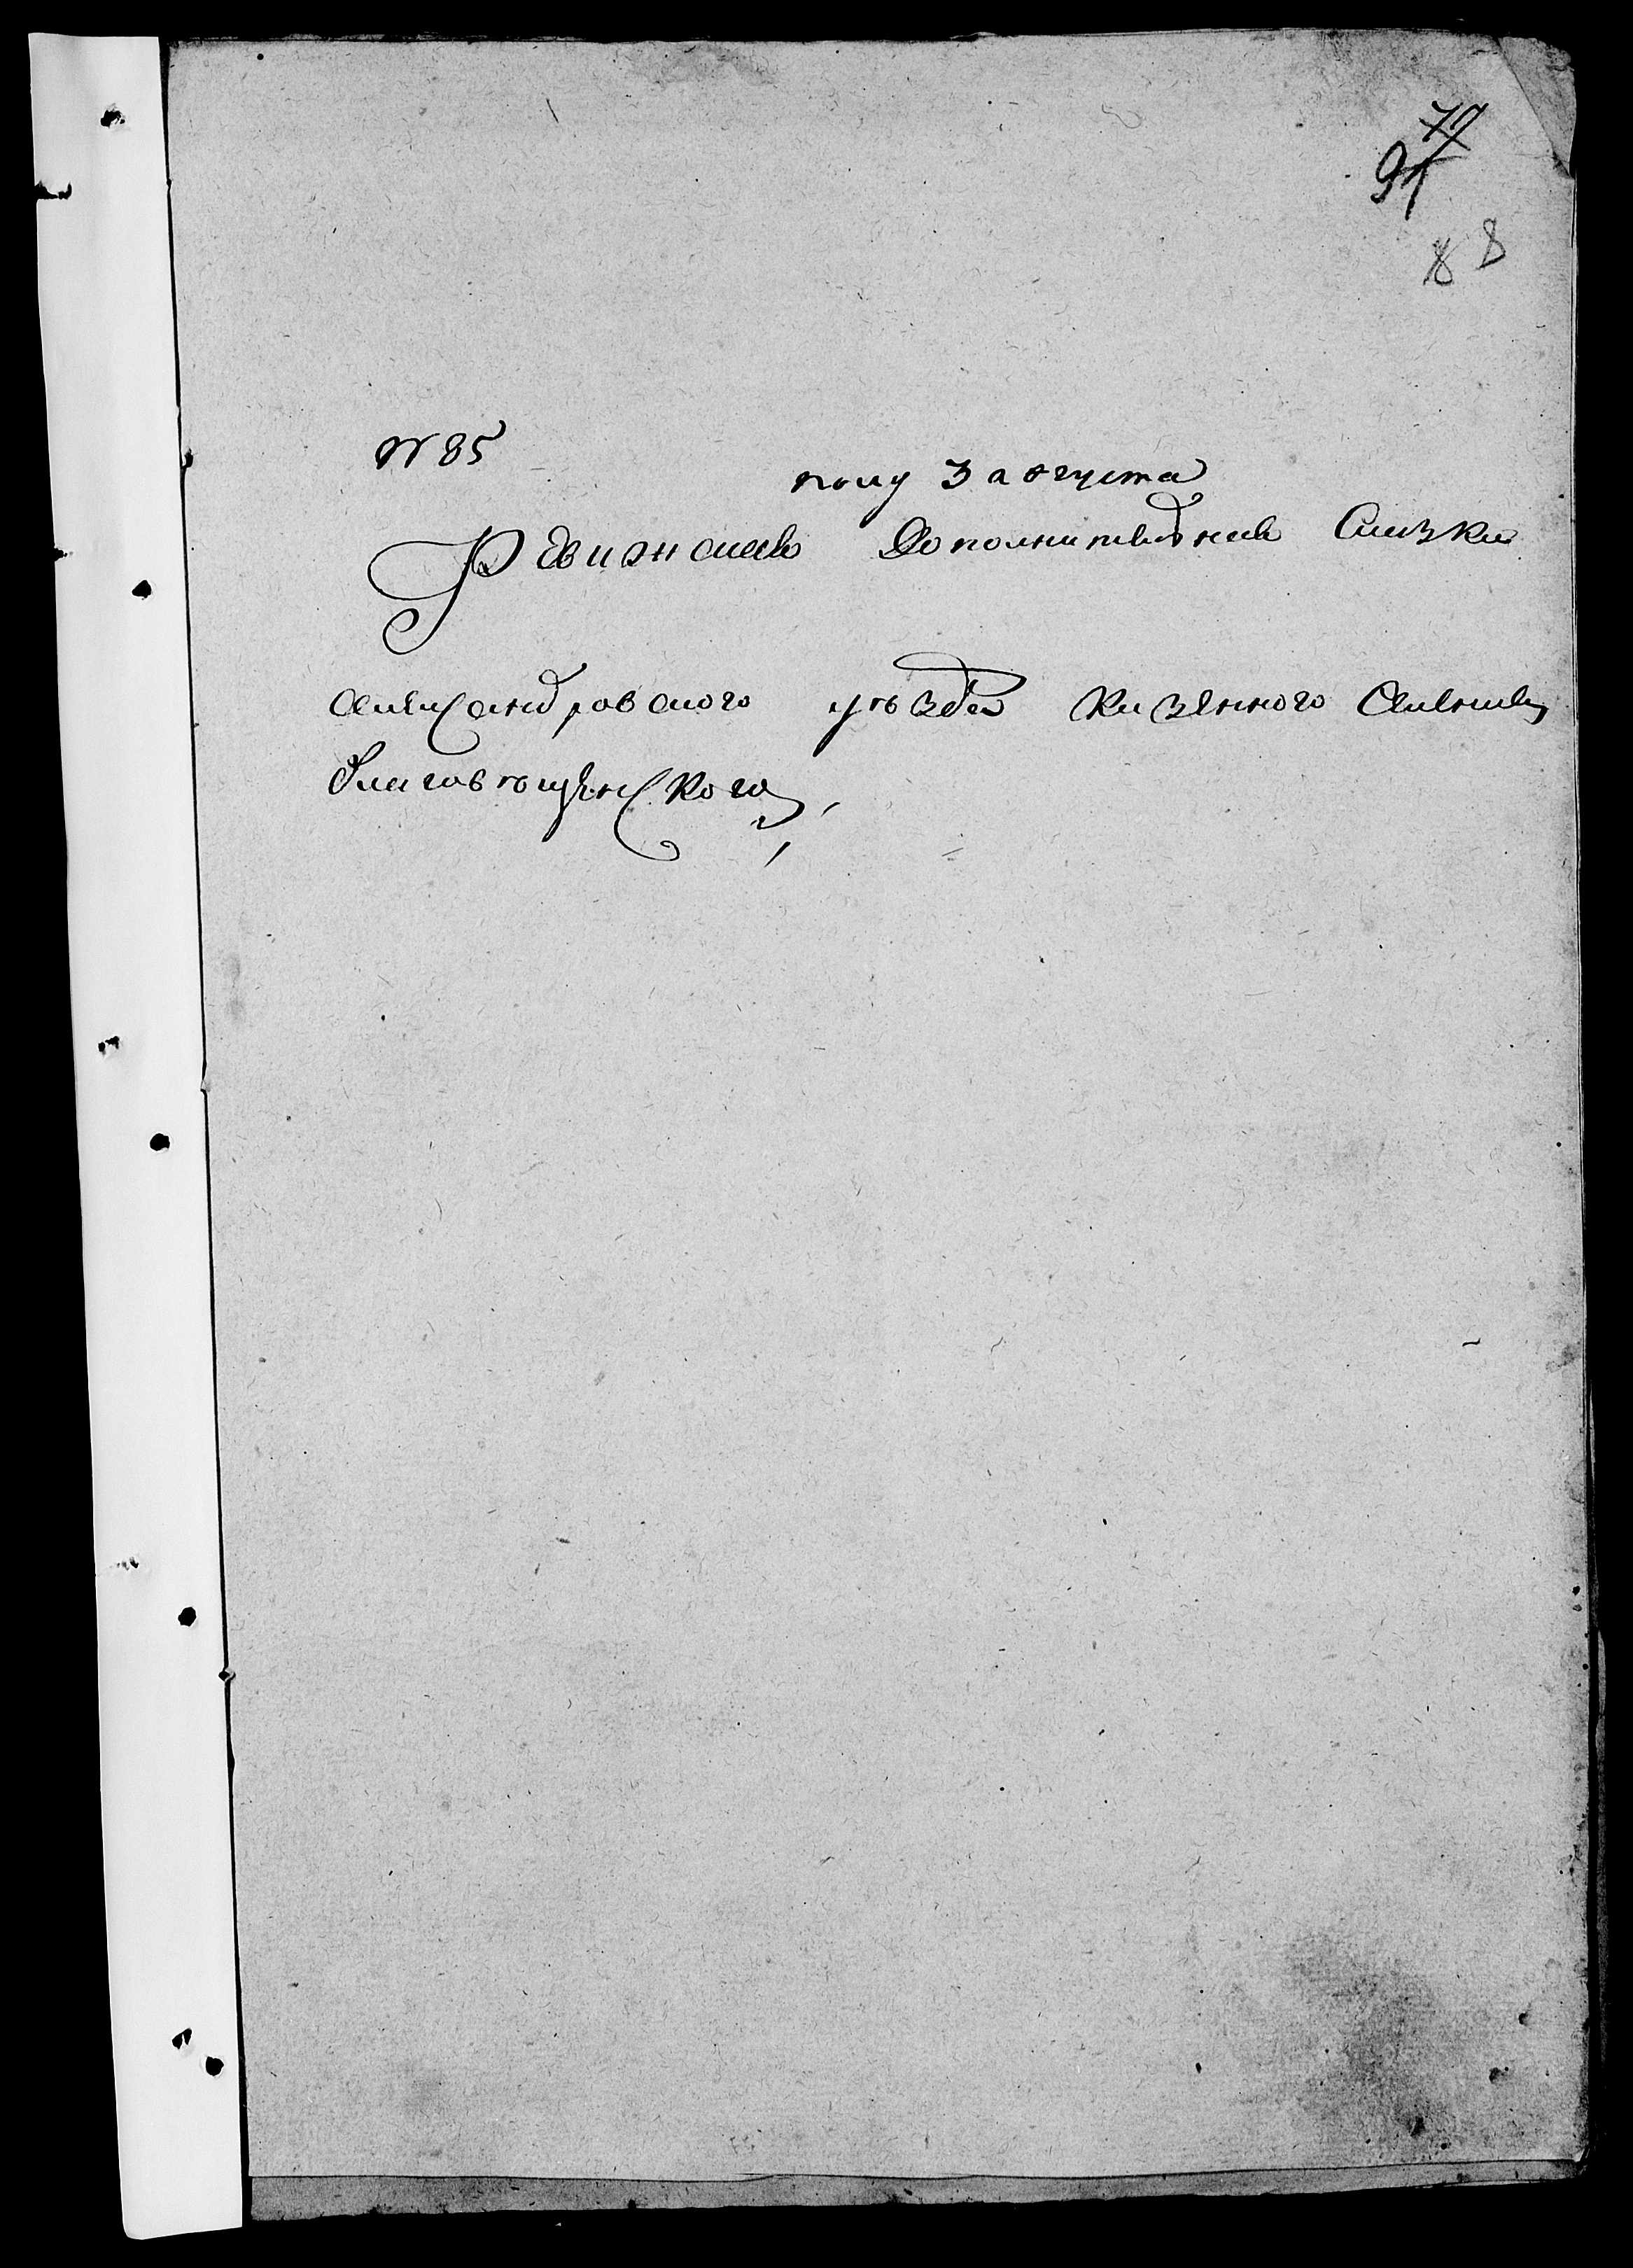 79
91
88
№ 85
полу 3 августа
Ревизская Дополнительная Сказка
Александровского уѣзда Казенного Селения
Благовѣщенского